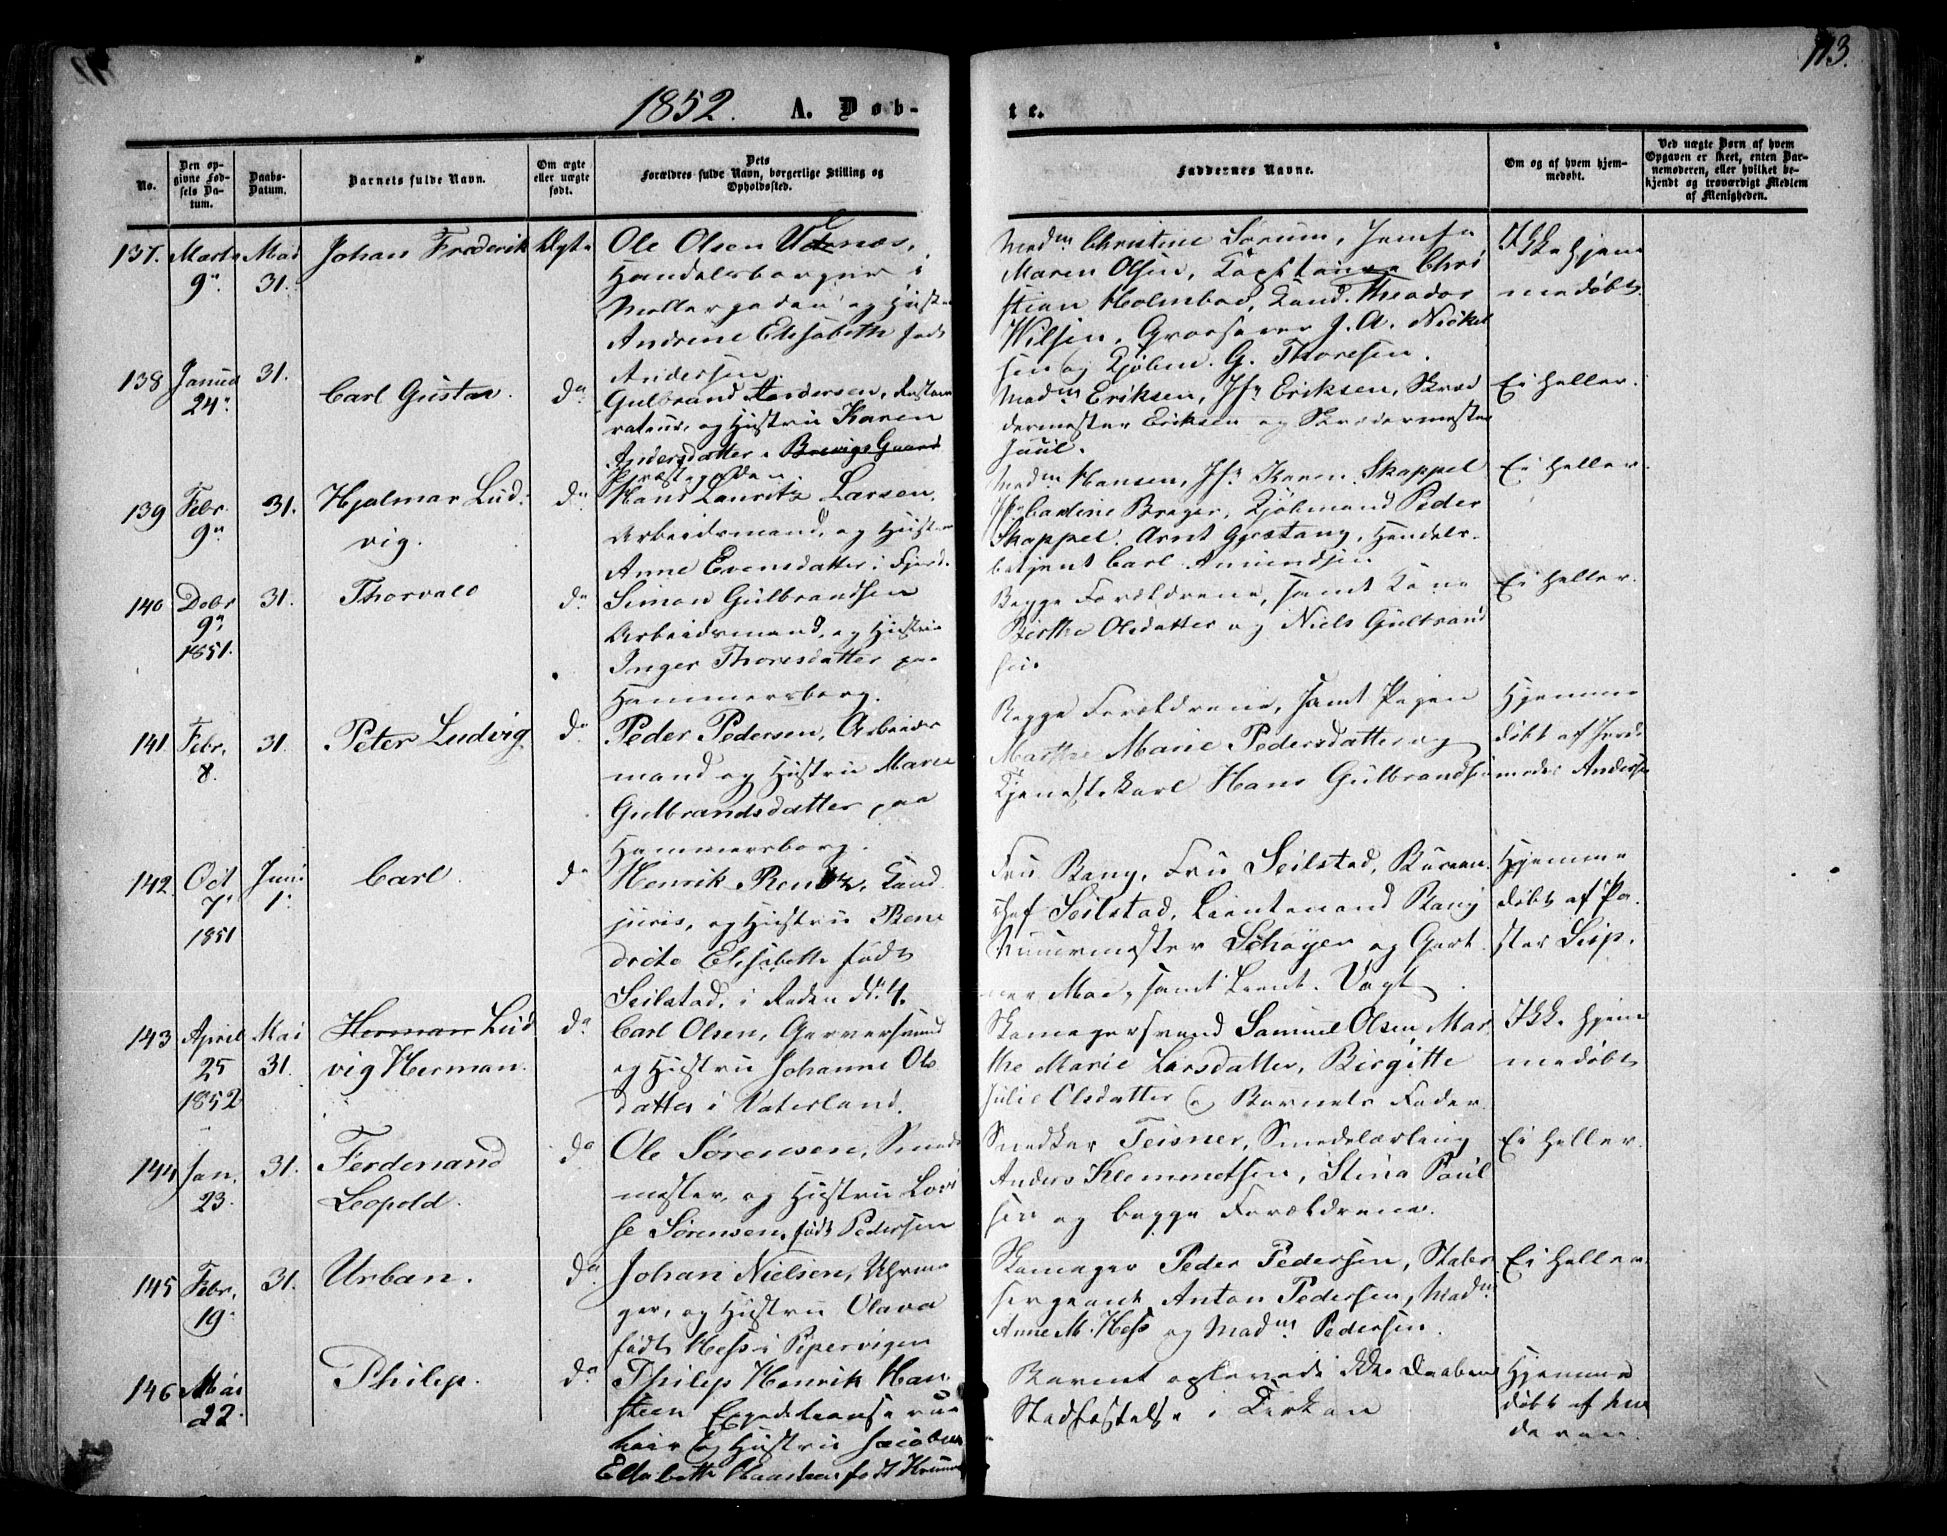 113.
1852. A. Døb-
te.
No.
Den op-
givne Fød-
sels Da-
tum.
Daabs-
Datum.
Barnets fulde Navn.
Om ægte
eller uægte
født.
Dets
Forældres fulde Navn, borgerlige Stilling og
Opholdssted.
Faddernes Navne.
Om og af hvem hjem-
medøbt.
Ved uægte Børn af hvem
Opgaven er skeet, enten Bar-
nemoderen, eller hvilket be-
kjendt og troværdigt Medlem
af Menigheden.
137. Marts Mai Johan Frederik Ægte Ole Olsen
9de 31. Handelsborger i
Møllergaden og Hustru
Andrine Elisabeth født
Andersen.
Madm Christine Sorum, Jomfu
Maren Olsen, Chri
stian Holmboe, Cand. Theodor
Wilsen, J. A. Nickel
sen og Kjøbm. G. Thoresen.
Ikke hjem
medøbt.
138 Januar 31. Carl Gustav. do
24de
Gulbrand Andersen, Restau
rateur, og Hustru Karen
Andersdatter i Brevigs Gaard
Præstegaden.
Madm Eriksen, Jfr Eriksen, Skræ
dermester Eriksen og Skrædermester
Juul.
Ei heller.
139 Febr. 31. Hjalmar Lud- do
9de vig.
Hans Lauritz Larsen,
Arbeidsmand, og Hustru
Anne Evensdatter i Fjerd.
Madm Hansen, Jfr Karen Skappel
Jfr Cardine Breger, Kjøbmand Peder
Skappel, Arnt Gjæstang, Handels-
betjent Carl Amundsen
Ei heller.
140 Decbr 31. Thorvald do
9de
1851.
Simon Gulbrandsen
Arbeidsmand, og Hustru
Inger Thoresdatter paa
Hammersborg.
Begge Forældrene, samt Kone
Birthe Olsdatter og Niels Gulbrand
sen.
Ei heller.
141. Febr. 31. Peter Ludvig do
8.
Peder Pedersen, Arbeids
mand og Hustru Maren
Gulbrandsdatter paa
Hammersborg.
Begge Forældrene, samt Pigen
Marthe Marie Pedersdatter og
Tjenestekarl Hans Gulbrandsen
Hjemme
døbt af Jord
moder Andersen
142. Oct Juni Carl. do
7de 1.
1851
Henrik Rentz, Cand.
juris, og Hustru Bene
dicte Elisabeth født
Seilstad, i Roden No 4.
Fru Bang, Fru Seilstad, Bureau
chef Seilstad, Lieutenand Bang
Muurmester Schøyen og Gart
ner Moe, samt Lieut. Vogt.
Hjemme
døbt af Pa-
stor Sisp.
143 April Mai Herman Lud do
25 31. vig Herman.
1852
Carl Olsen, Garversvend
og Hustru Johanne Ols
datter i Vaterland.
Skomagersvend Samuel Olsen, Mar
the Marie Larsdatter, Birgitte
Julie Olsdatter og Barnets Fader.
Ikke hjem
medøbt
144 Jan. 31. Ferdenand do
23. Leopold.
Ole Sørensen, Smede
mester, og Hustru Lovi
se Sørensen, født Pedersen
Snedker Teisner, Smedelærling
Anders Klemmetsen, Stina Paul
sen og begge Forældrene.
Ei heller.
145 Febr. 31. Urban. do
19.
Johan Nielsen, Uhrma
ger, og Hustru Olava
født Hess i Pipervigen
Skomager Peder Pedersen, Stabs
sergeant Anton Pedersen, Madm
Anne M. Hess og Madm Pedersen.
Ei heller.
146 Mai Philip. do
22.
Philip Henrik Han
steen
og Hustru Jacobine
Elisabeth født
Barnet oplevede ikke Daabens
Stadfæstelse i Kirken
Hjemme
døbt af